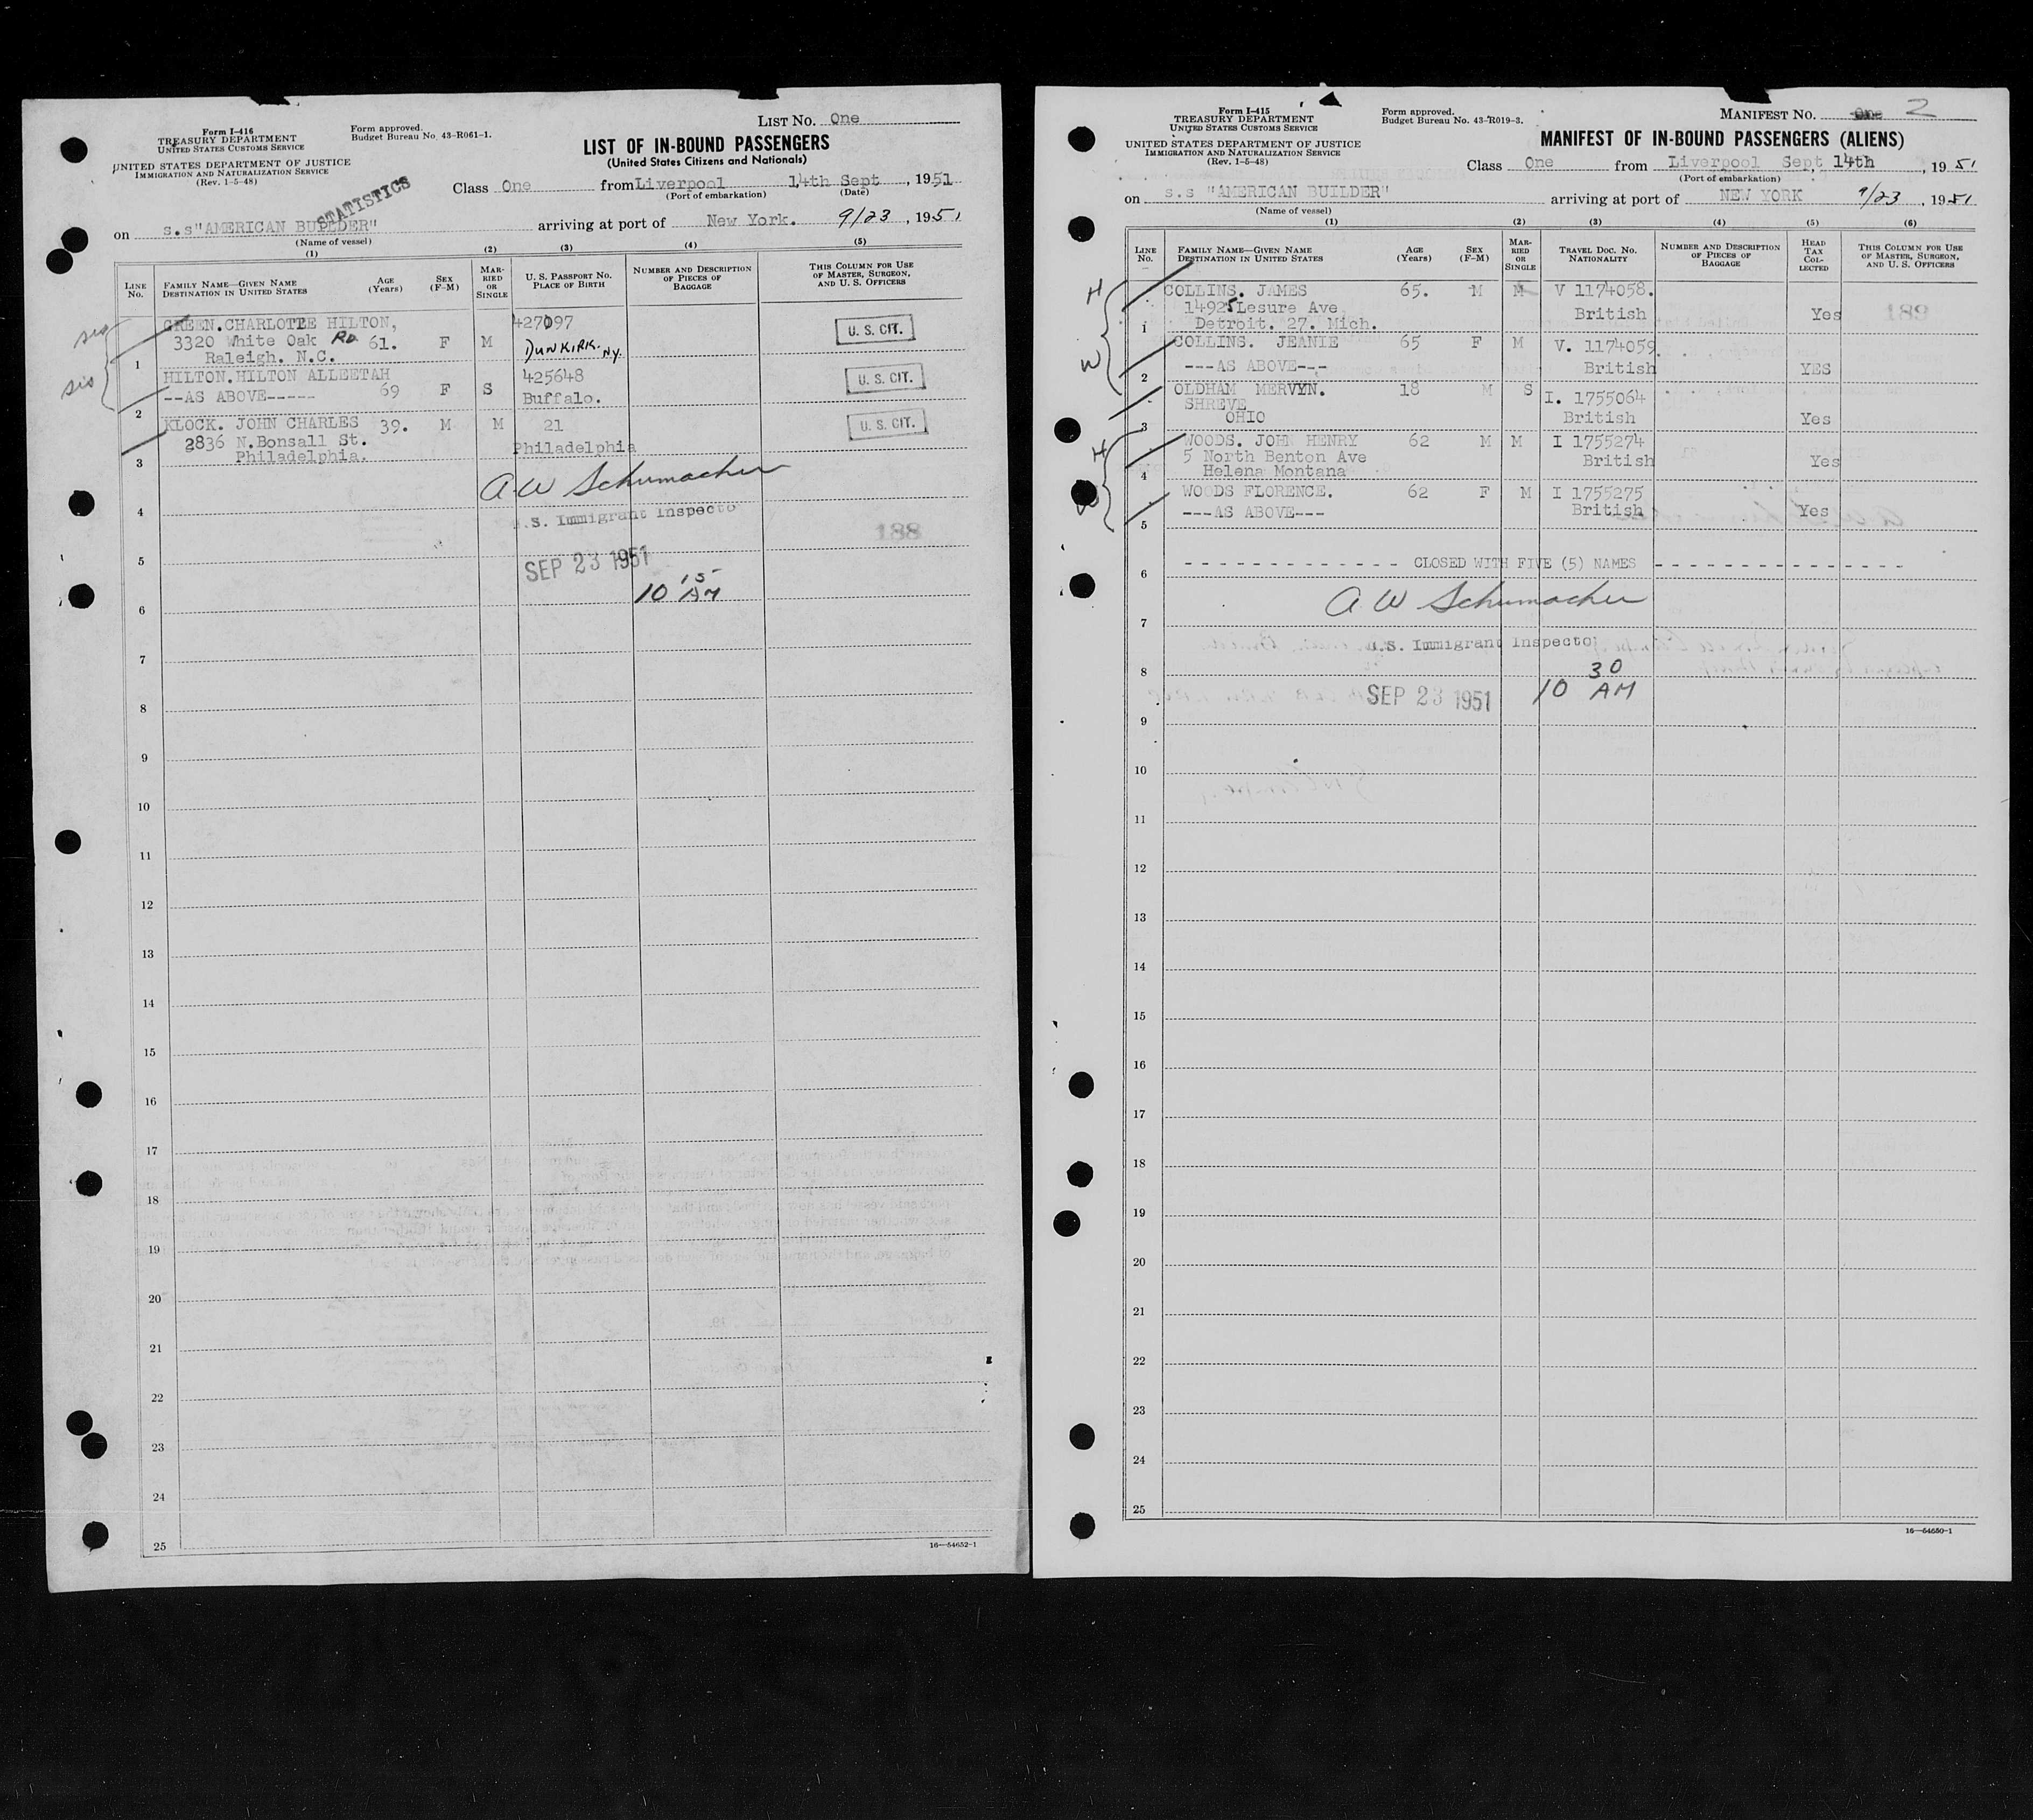 Form I-416
TREASURY DEPARTMENT
UNITED STATES CUSTOMS SERVICE
UNITED STATES DEPARTMENT OF JUSTICE
IMMIGRATION AND NATURALIZATION SERVICE
(Rev. 1-5-48)
Form approved.
Budget Bureau No. 43-R061-1.
LIST No. One
LIST OF IN-BOUND PASSENGERS
(United States Citizens and Nationals)
STATISTICS
Class One from Liverpool 14th Sept, 1951
(Port of embarkation) (Date)
on s.s"AMERICAN BUILDER" arriving at port of New York. 9/23, 1951
(Name of vessel)
(1) (2) (3) (4) (5)
LINE No.
FAMILY NAME—GIVEN NAME
DESTINATION IN UNITED STATES
AGE (Years)
SEX (F-M)
MARRIED OR SINGLE
U. S. PASSPORT NO.
PLACE OF BIRTH
NUMBER AND DESCRIPTION OF PIECES OF BAGGAGE
THIS COLUMN FOR USE OF MASTER, SURGEON, AND U. S. OFFICERS
GREEN.CHARLOTTE HILTON, 427097 U. S. CIT.
3320 White Oak RD 61. F M DUNKIRK. NY.
1 Raleigh. N.C.
sis
HILTON.HILTON ALLEETAH 425648 U. S. CIT.
--AS ABOVE----- 69 F S Buffalo.
2
KLOCK. JOHN CHARLES 39. M M 21 U. S. CIT.
2836 N.Bonsall St. Philadelphia
3 Philadelphia.
A W Schumacher
4
U.S. Immigrant Inspecto
188
5
SEP 23 1951
10 15 AM
6
7
8
9
10
11
12
13
14
15
16
17
18
19
20
21
22
23
24
25
16—54652-1
Form I-415
TREASURY DEPARTMENT
UNITED STATES CUSTOMS SERVICE
UNITED STATES DEPARTMENT OF JUSTICE
IMMIGRATION AND NATURALIZATION SERVICE
(Rev. 1-5-48)
Form approved.
Budget Bureau No. 43-R019-3.
MANIFEST No. One 2
MANIFEST OF IN-BOUND PASSENGERS (ALIENS)
Class One from Liverpool Sept, 14th, 1951
(Port of embarkation)
on s.s "AMERICAN BUILDER" arriving at port of NEW YORK 9/23, 1951
(Name of vessel)
(1) (2) (3) (4) (5) (6)
LINE No.
FAMILY NAME—GIVEN NAME
DESTINATION IN UNITED STATES
AGE (Years)
SEX (F-M)
MARRIED OR SINGLE
TRAVEL DOC. NO.
NATIONALITY
NUMBER AND DESCRIPTION OF PIECES OF BAGGAGE
HEAD TAX COLLECTED
THIS COLUMN FOR USE OF MASTER, SURGEON, AND U. S. OFFICERS
H
COLLINS. JAMES 65. M M V 1174058.
14925 Lesure Ave British Yes
1 Detroit. 27. Mich.
W
COLLINS. JEANIE 65 F M V. 1174059.
2 ---AS ABOVE--- British YES
OLDHAM MERVYN. 18 M S I. 1755064
SHREVE British Yes
3 OHIO
H
WOODS. JOHN HENRY 62 M M I 1755274
5 North Benton Ave British Yes
4 Helena Montana
WOODS FLORENCE. 62 F M I 1755275
5 ---AS ABOVE--- British Yes
6 - - - - - - - - - - - - - CLOSED WITH FIVE (5) NAMES - - - - - - - - - - - - - - -
A W Schumacher
7
U.S. Immigrant Inspector
8
SEP 23 1951 10 30 AM
9
10
11
12
13
14
15
16
17
18
19
20
21
22
23
24
25
16—54650-1